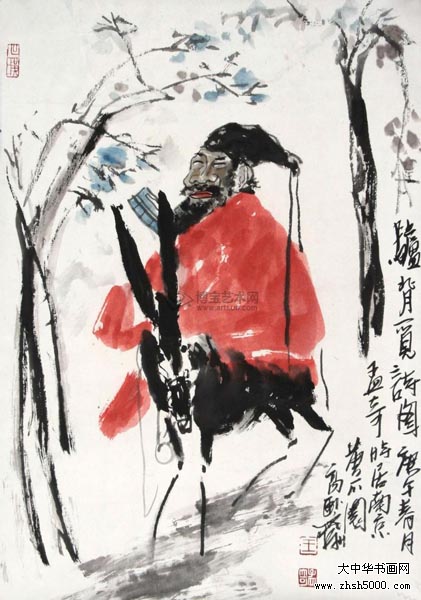 驢背覓詩圖 庚午春月
孟奇時居南京
黄瓜園
博宝艺术网
大中华书画网
www.zhsh5000.com